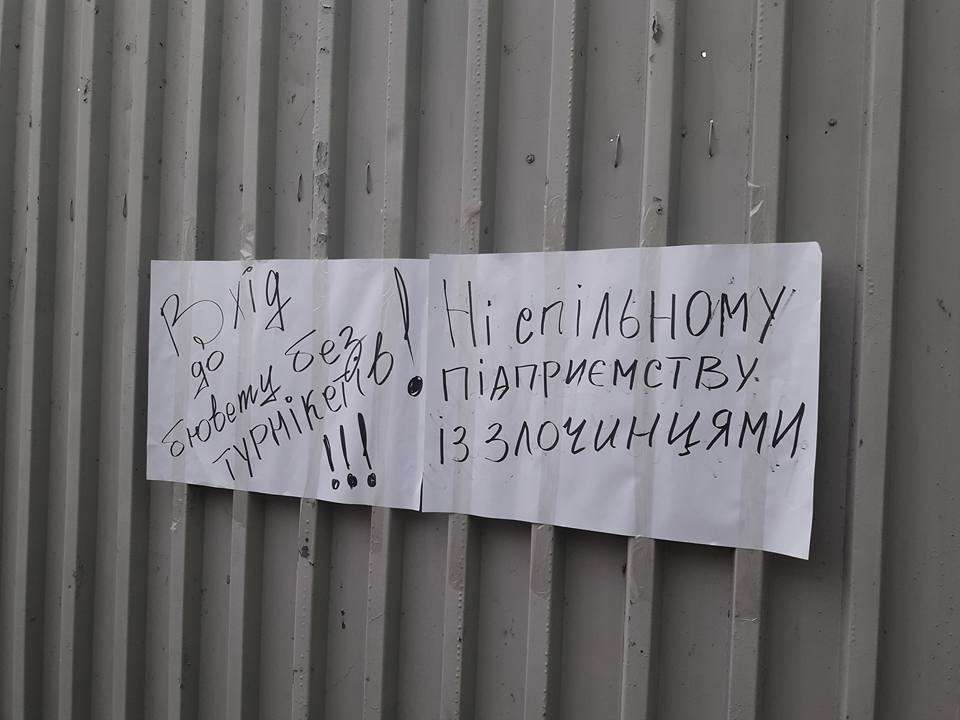 Вхід
до
бювету без
турмікетів!
!!!
Ні спільному
підприємству
із злочинцями